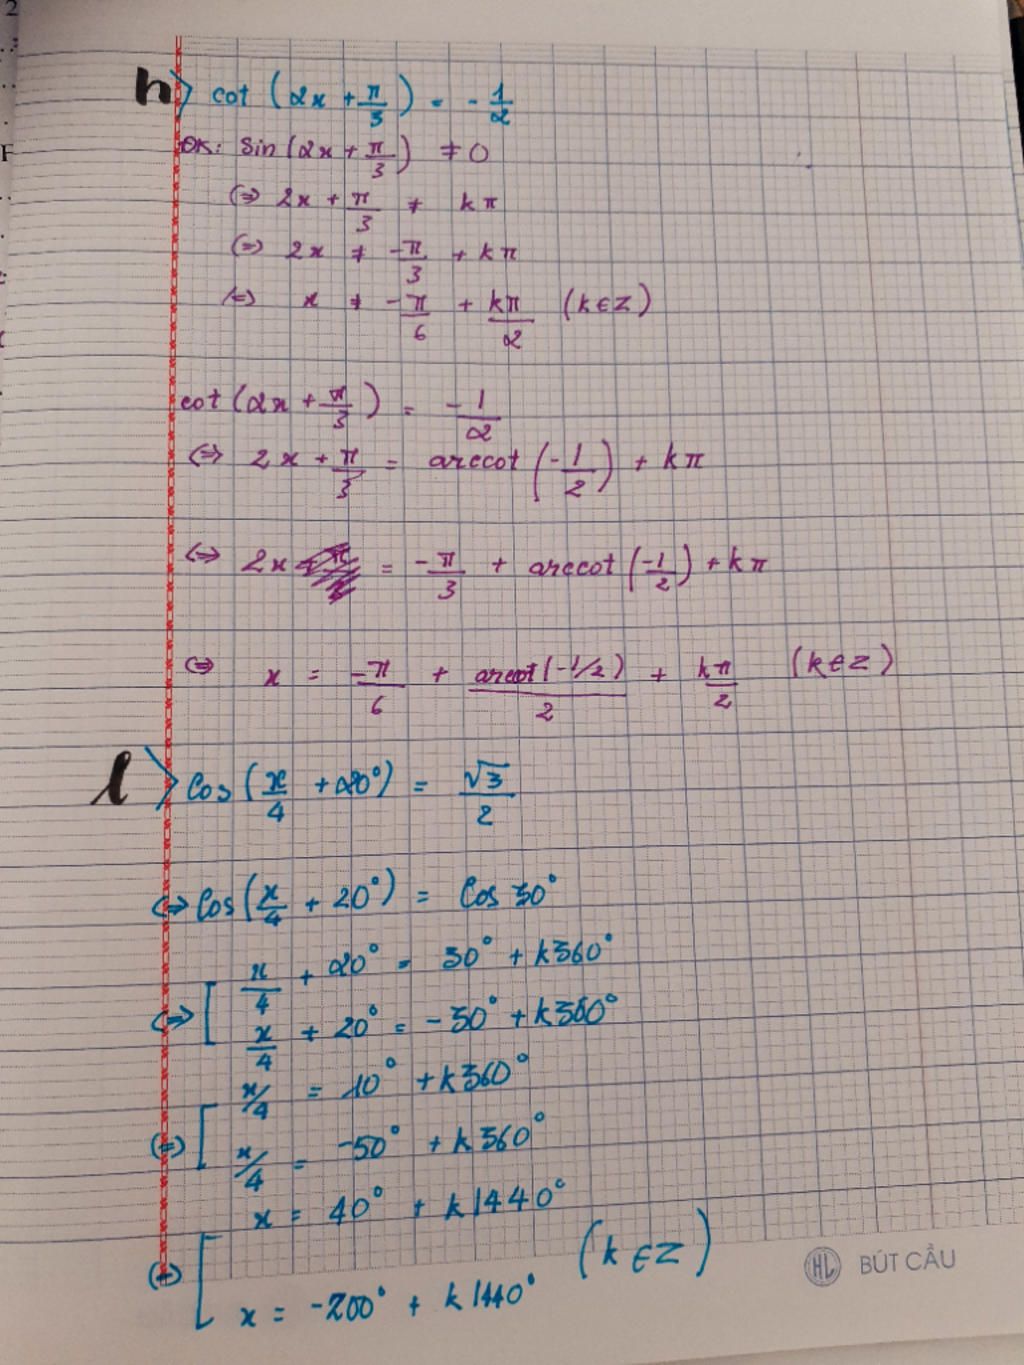 h) cot (2x + π/3) = -1/2
ĐK: sin(2x + π/3) ≠ 0
(=> 2x + π/3 ≠ kπ
(=) 2x ≠ -π/3 + kπ
(=) x ≠ -π/6 + kπ/2 (k∈Z)
cot(2x + π/3) = -1/2
(=> 2x + π/3 = arccot(-1/2) + kπ
(=> 2x = -π/3 + arccot(-1/2) + kπ
(=> x = -π/6 + arccot(-1/2)/2 + kπ/2 (k∈Z)
l) Cos(x/4 + 20°) = √3/2
(=> Cos(x/4 + 20°) = Cos 30°
x/4 + 20° = 30° + k360°
(=> [ x/4 + 20° = -30° + k360°
x/4 = 10° + k360°
(=) [ x/4 = -50° + k360°
x = 40° + k1440°
(=) [ (k∈Z)
x = -200° + k1440°
HL BÚT CẦU